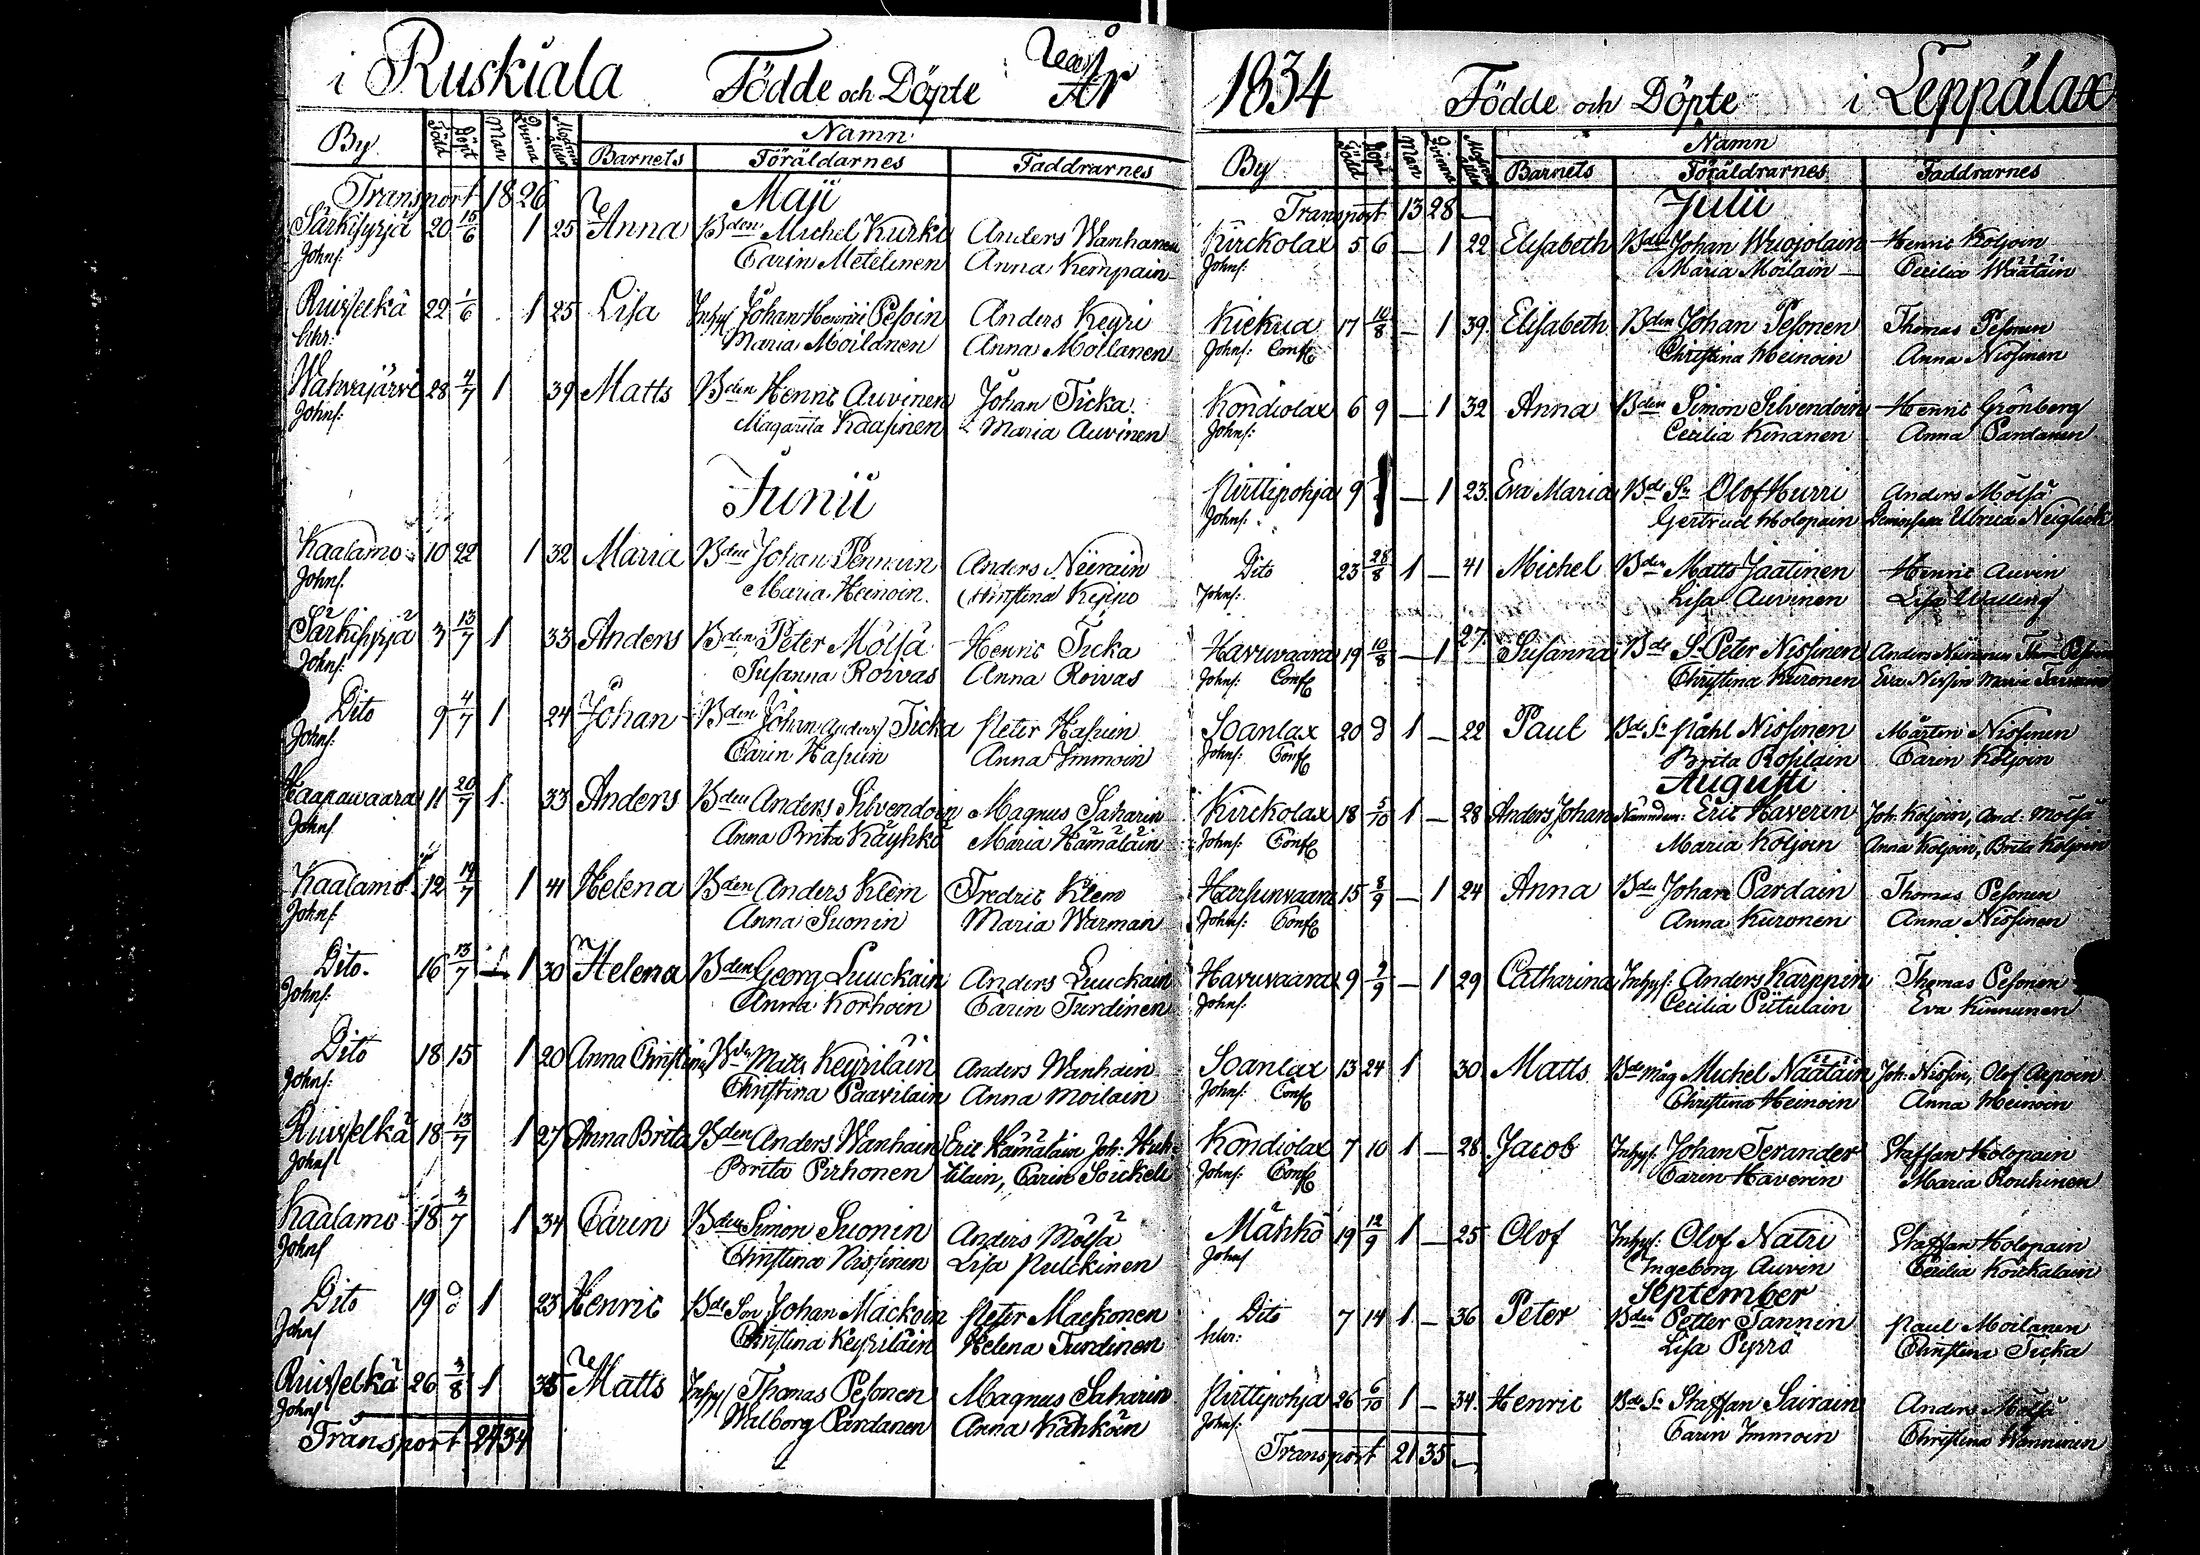 i Ruskiala Födde och Döpte År
By Född Döpt Man Qvinna Namn
Barnets Föräldarnes Faddrarnes
Transport 18 26 Maji
Särkisyrjä 20 15/6 1 25 Anna Bden Michel Kurki Anders Wanhanen
Johns: Carin Metelinen Anna Kempain
Ruisselkä 22 1/6 1 25 Lisa Inhys Johan Henric Pesoin Anders Keyri
Maria Moilanen Anna Mollanen
Wahvajärvi 28 4/7 1 39 Matts Bden Henric Auvinen Johan Ticka
Johns: Magarita Kaasinen Maria Auvinen
Junii
Kaalamo 10 22 1 32 Maria Bden Johan Pennain Anders Neerain
Johns: Maria Heinoin Christina Keppo
Särkisyrjä 3 13/7 1 33 Anders Bden Peter Mölsä Henric Ticka
Johns: Susanna Roivas Anna Roivas
Dito 9 4/7 1 24 Johan Bden Johan Anders Ticka Peter Hasuin
Johns: Carin Hasuin Anna Immoin
Haapawaara 11 20/7 1 33 Anders Bden Anders Silvendoin Magnus Saharin
Johns: Anna Brita Käyhkö Maria Hämäläin
Kaalamo 12 19/7 1 41 Helena Bden Anders Klem Fredric Klem
Johns: Anna Suonin Maria Warman
Dito 16 13/7 1 30 Helena Bden Georg Luuckain Anders Luuckain
Johns: Anna Korhoin Carin Turdinen
Dito 18 15 1 20 Anna Christina Bden Matts Keyriläin Anders Wanhain
Johns: Christina Paavilain Anna Moilain
Ruisselkä 18 13/7 1 27 Anna Brita Bden Anders Wanhain Eric Hämäläin Joh: Huk-
Johns Brita Pirhonen kilain, Carin Soickeli
Kaalamo 18 3/7 1 34 Carin Bden Simon Suonin Anders Mölsä
Johns Christina Nissinen Lisa Pulckinen
Dito 19 1 23 Henric Bde Son Johan Mäckoin Peter Maekonen
Johns Christina Keyriläin Helena Turdinen
Ruisselkä 26 3/8 1 Matts Inhys Thomas Pesonen Magnus Saharin
Johns Walborg Pardanen Anna Kähköin
Transport 24 34
1834 Födde och Döpte i Leppälax
By Född Döpt Man Qvinna Namn
Barnets Föräldrarnes Faddrarnes
Transport 13 28 Julii
Kirckolax 5 6 — 1 22 Elisabeth Bden Johan Wuojolain Henric Koljoin
Johns: Maria Moilain Cecilia Wäätäin
Kiekua 17 10/8 — 1 39 Elisabeth Bden Johan Pesonen Thomas Pesonen
Johns: Conf Christina Heinoin Anna Nissinen
Kondiolax 6 9 — 1 32 Anna Bden Simon Silvendoin Henric Grönberg
Johns: Cecilia Kinanen Anna Pardanen
Pirttipohja 9 — 1 23 Eva Maria Bde Sn Olof Hurri Anders Mölsä
Johns: Gertrud Holopain Ulrica Neiglick
Dito 23 28/8 1 — 41 Michel Bden Matts Jaatinen Henric Auvin
Johns: Lisa Auvinen Lisa Walling
Havuvaara 19 10/8 — 1 27 Susanna Bde S. Peter Nissinen Anders
Johns: Conf Christina Kuronen Eva Nissin Maria
Soanlax 20 d 1 — 22 Paul Bde Sn Påhl Nissinen Mårten Nissinen
Johns: Conf Brita Rosilain Carin Koljoin
Augusti
Kirckolax 18 5/10 1 — 28 Anders Johan Nämnden: Eric Haverin Joh: Koljoin, And: Mölsä
Johns: Conf Maria Koljoin Anna Koljoin, Brita Koljoin
Harsunvaara 15 8/9 — 1 24 Anna Bden Johan Pardain Thomas Pesonen
Johns: Conf Anna Kuronen Anna Nissinen
Havuvaara 9 9/9 — 1 29 Catharina Inhys: Anders Karppin Thomas Pesonen
Johns: Cecilia Piitulain Eva Kinnunen
Soanlax 13 24 1 30 Matts Bde måg Michel Näätäin Joh: Nissin, Olof Arpoin
Johns: Conf Christina Heinoin Anna Heinoin
Kondiolax 7 10 1 — 28 Jacob Inhys: Johan Terander Staffan Holopain
Johns: Conf Carin Haverin Maria Rouhinen
Mähkö 19 12/9 1 — 25 Olof Inhys: Olof Natri Staffan Holopain
Johns Ingeborg Auvin Cecilia Koickalain
September
Dito 7 14 1 — 36 Peter Bden Petter Tannin Paul Moilanen
Lisa Pyrrö Christina Ticka
Pirttipohja 26 6/10 1 — 34 Henric Bde Sn Staffan Sairain Anders Mölsä
Johns: Carin Immoin Christina Wanninen
Transport 21 35